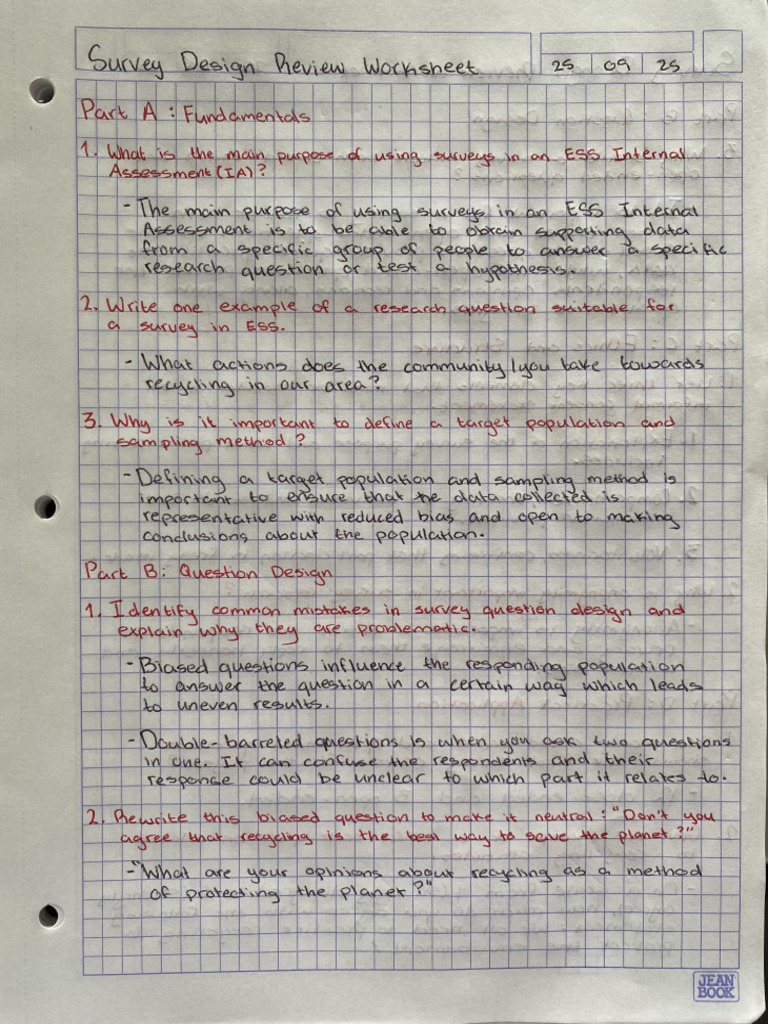 Survey Design Review Worksheet
25 09 25
Part A : Fundamentals
1. What is the main purpose of using surveys in an ESS Internal
Assessment (IA)?
- The main purpose of using surveys in an ESS Internal
Assessment is to be able to obtain supporting data
from a specific group of people to answer a specific
research question or test a hypothesis.
2. Write one example of a research question suitable for
a survey in ESS.
- What actions does the community/you take towards
recycling in our area?
3. Why is it important to define a target population and
sampling method?
- Defining a target population and sampling method is
important to ensure that the data collected is
representative with reduced bias and open to making
conclusions about the population.
Part B: Question Design
1. Identify common mistakes in survey question design and
explain why they are problematic.
- Biased questions influence the responding population
to answer the question in a certain way which leads
to uneven results.
- Double-barreled questions is when you ask two questions
in one. It can confuse the respondents and their
response could be unclear to which part it relates to.
2. Rewrite this biased question to make it neutral: "Don't you
agree that recycling is the best way to save the planet?"
- "What are your opinions about recycling as a method
of protecting the planet?"
JEAN
BOOK